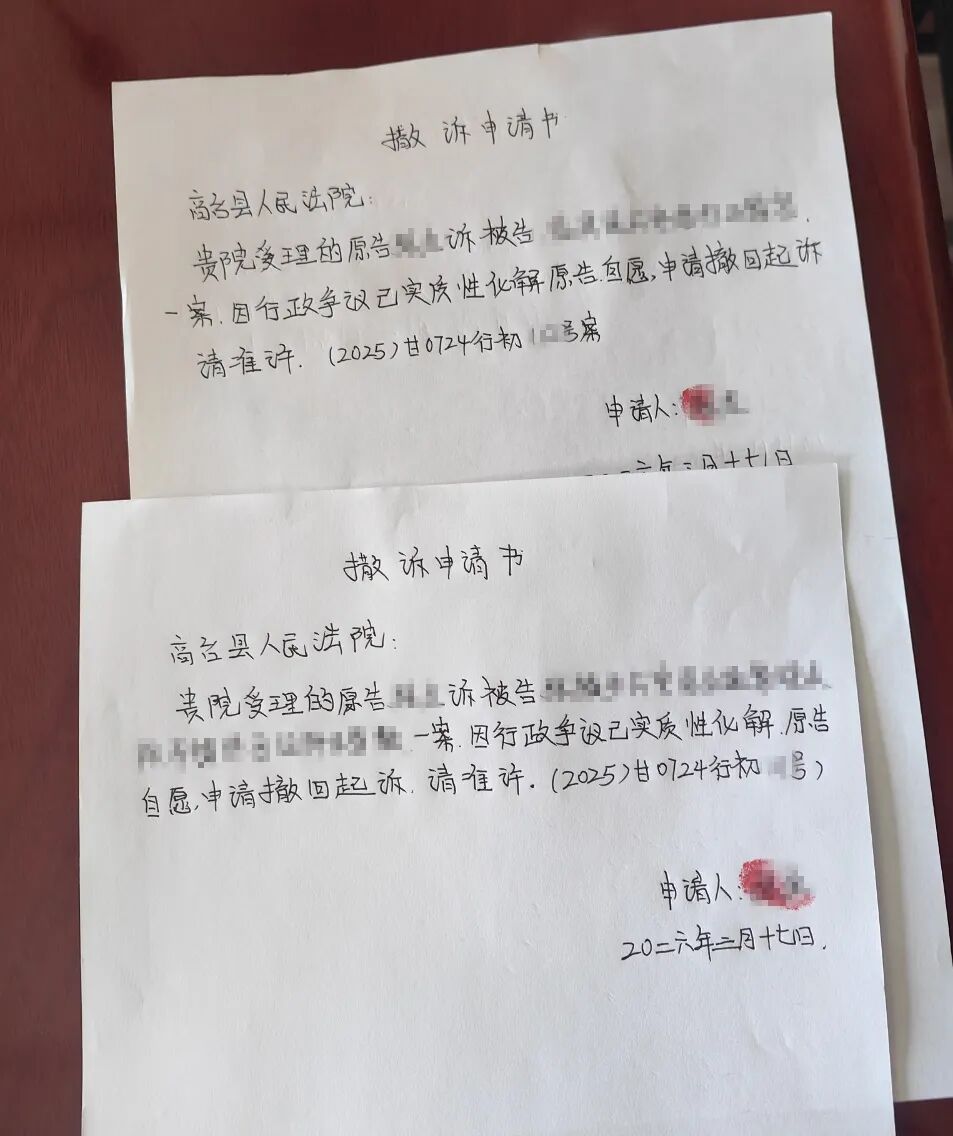 撤诉申请书
高台县人民法院：
贵院受理的原告 诉被告
一案.因行政争议已实质性化解原告自愿,申请撤回起诉
请准许.(2025)甘0724行初1 号案
申请人:
二〇二六年三月十七日
撤诉申请书
高台县人民法院：
贵院受理的原告 诉被告
一案.因行政争议已实质性化解.原告
自愿,申请撤回起诉.请准许.(2025)甘0724行初 号)
申请人:
20二六年三月十七日.